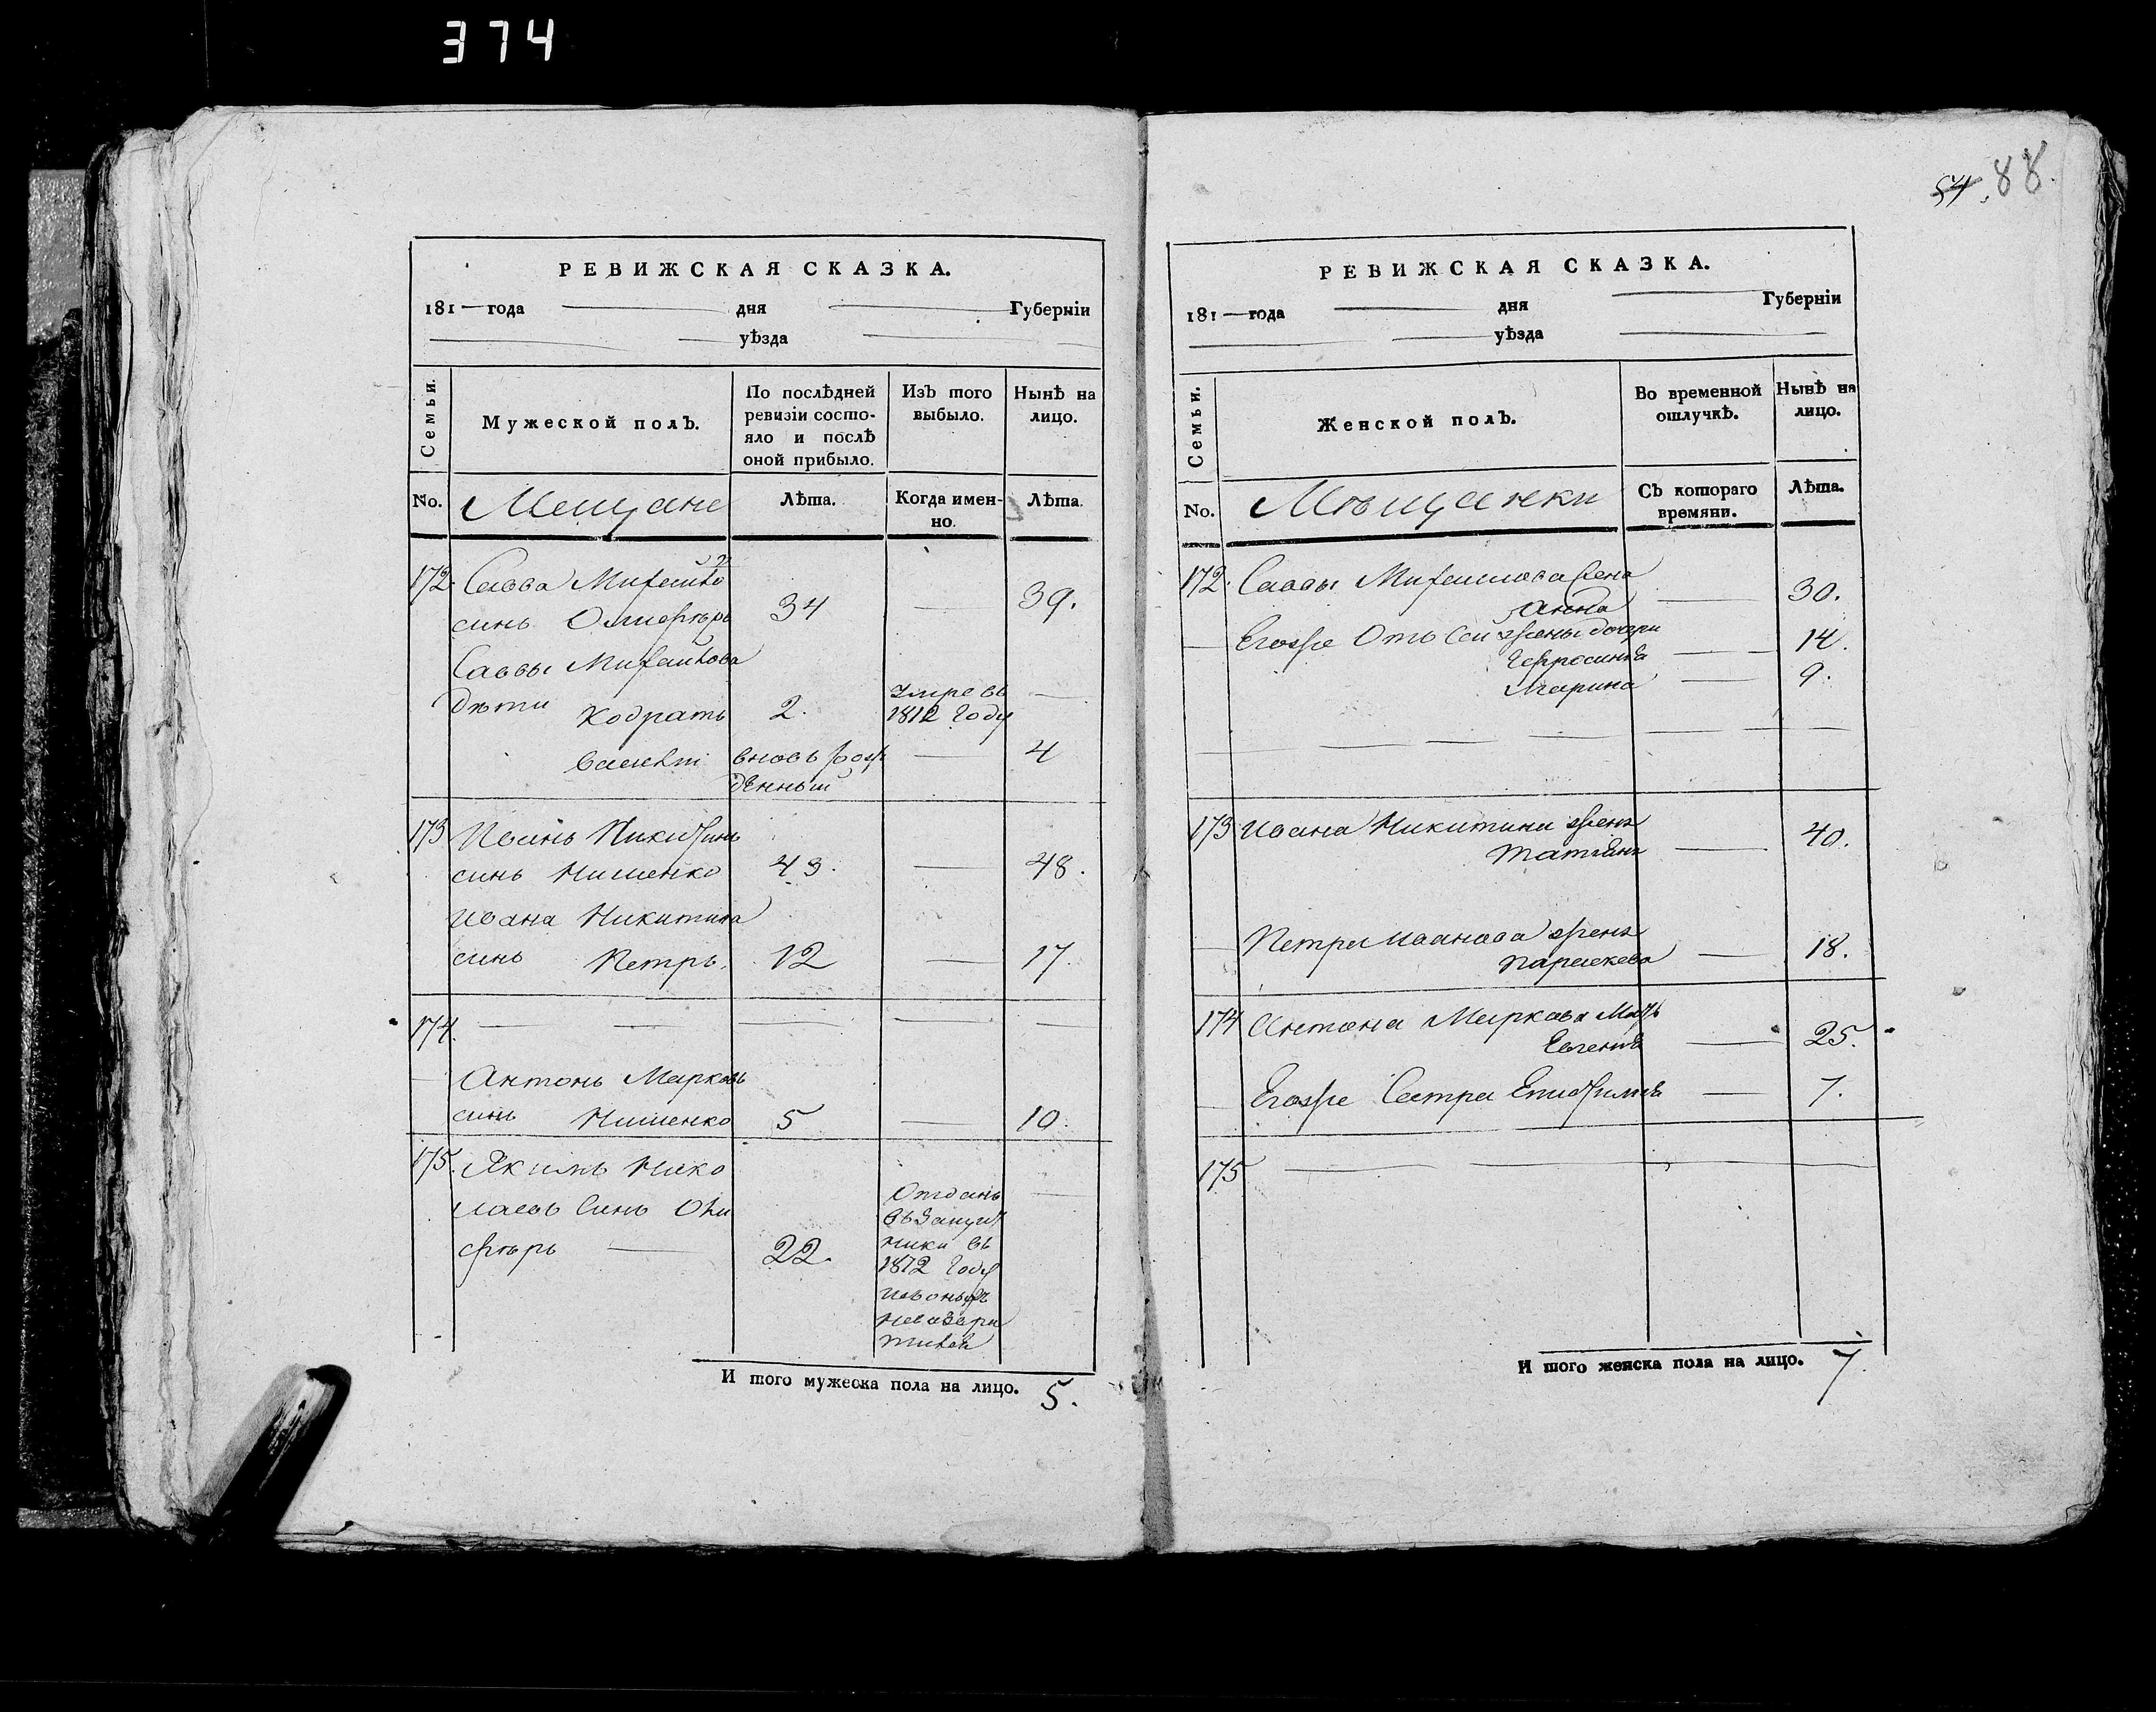 374
54. 88.
РЕВИЖСКАЯ СКАЗКА.
181 — года — дня — Губерніи
— уѣзда —
Семьи.
Мужеской полъ.
По послѣдней
ревизіи состо-
яло и послѣ
оной прибыло.
Изъ того
выбыло.
Нынѣ на
лицо.
No.
Мещане
Лѣта.
Когда имен-
но.
Лѣта.
172. Савва Михайло
синь 34 — 39.
Саввы Михайлова
дѣти Кодрать 2. умре въ
1812 году —
вновь рож
денный — 4
173 Иванъ Никитинъ
синь Нименко 43. — 48.
Ивана Никитина
синь Петръ. 12 — 17.
174. — — — — —
— Антонъ Марковъ
синь Нименко 5 — 10.
175. Якимъ Нико
лаевъ Синь Оли
феръ — 22.
Отданъ —
въ
ники въ
1812 году
И того мужеска пола на лицо. 5.
РЕВИЖСКАЯ СКАЗКА.
181 — года — дня — Губерніи
— уѣзда —
Семьи.
Женской полъ.
Во временной
отлучкѣ.
Нынѣ на
лицо.
No.
Мѣщанки
Съ котораго
времяни.
Лѣта.
172. Саввы Михаилова жена
Анна — 30.
— Егожъ Отъ Сей жены дочери
— 14.
Марина — 9.
173 Ивана Никитина жена
Татіяна — 40.
— Петра Иванова жена
Параскева — 18.
174 Антона Маркова Мать
Евгенія — 25.
— Егоже Сестра — 7.
175 — — —
И того женска пола на лицо. 7.